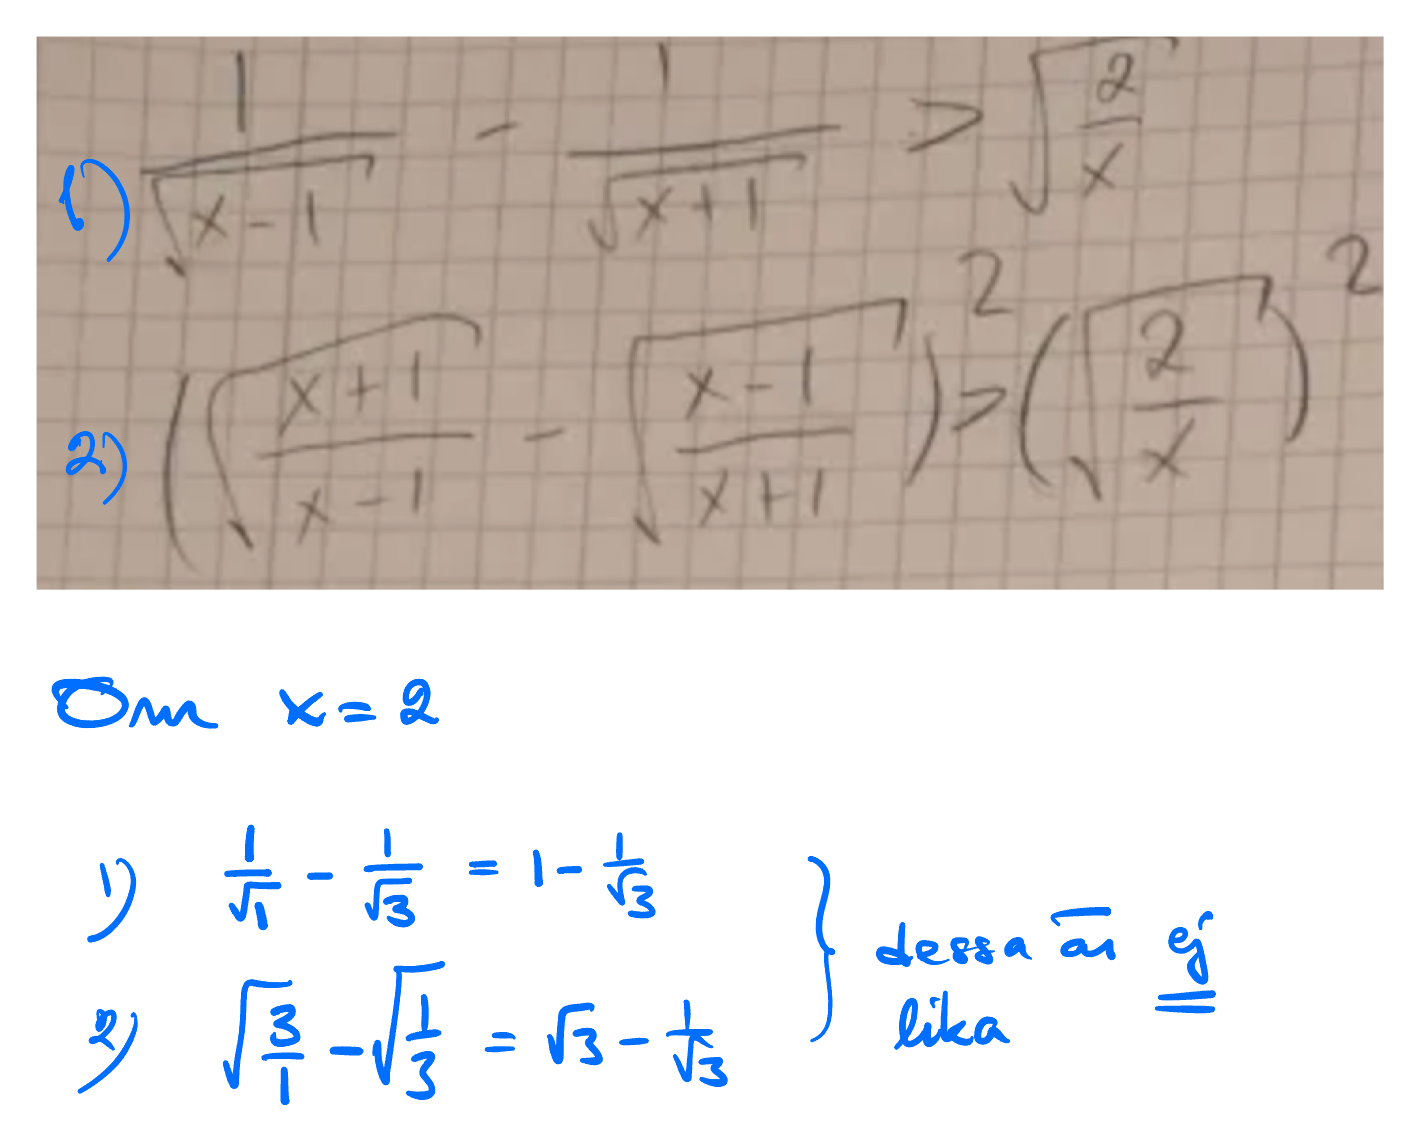 1) 1/√(x-1) - 1/√(x+1) > √(2/x)
2) (√((x+1)/(x-1)) - √((x-1)/(x+1)))² > (√(2/x))²
Om x = 2
1) 1/√1 - 1/√3 = 1 - 1/√3
2) √(3/1) - √(1/3) = √3 - 1/√3
} dessa är ej
lika